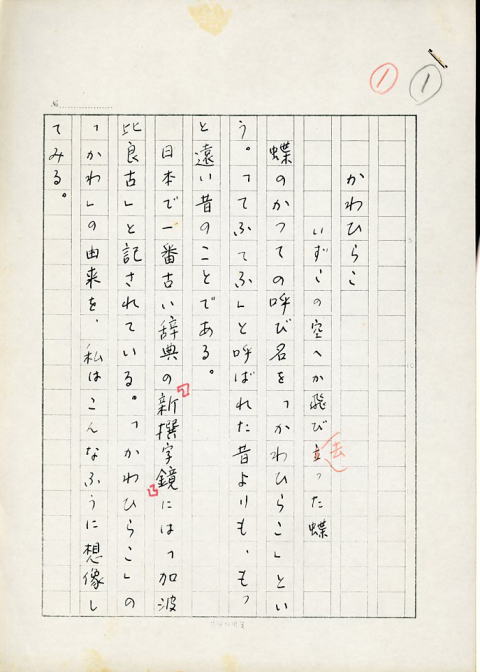 1
1
№
かわひらこ
いずこの空へか飛び立った蝶
去
蝶のかつての呼び名を「かわひらこ」とい
う。「てふてふ」と呼ばれた昔よりも、もっ
と遠い昔のことである。
日本で一番古い辞典の『新撰字鏡』には「加波
比良古」と記されている。「かわひらこ」の
「かわ」の由来を、私はこんなふうに想像し
てみる。